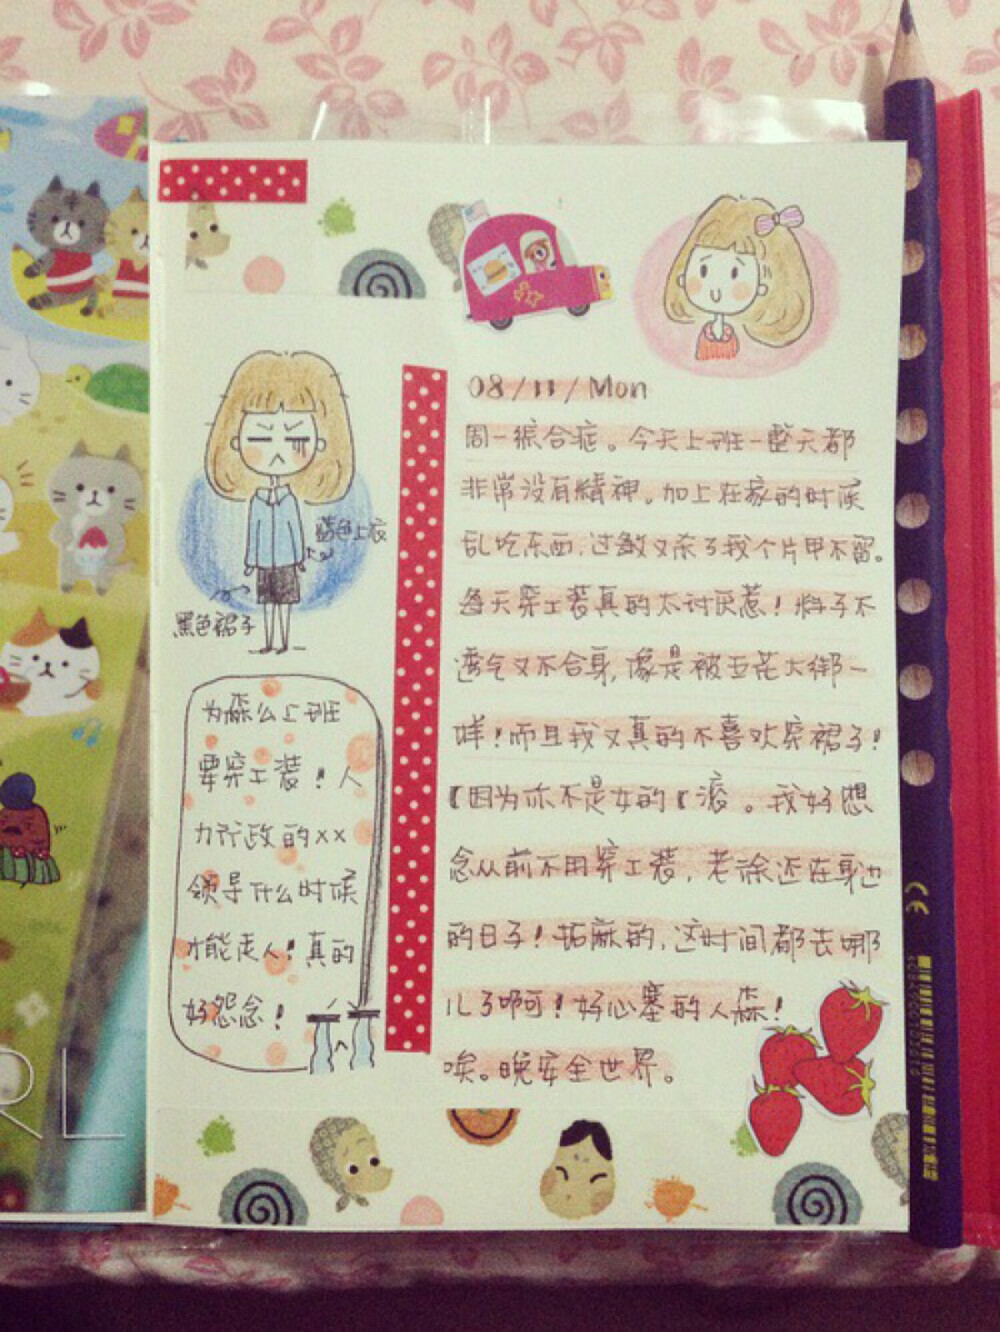 08/11/Mon
周一综合症。今天上班一整天都
非常没有精神。加上在家的时候
乱吃东西，过敏又杀了我个片甲不留。
每天穿工装真的太讨厌惹！料子不
透气又不合身，像是被五花大绑一
样！而且我又真的不喜欢穿裙子！
【因为你不是女的【滚。我好想
念从前不用穿工装，老徐还在身边
的日子！拓麻的，这时间都去哪
儿了啊！好心塞的人森！
唉。晚安全世界。
蓝色上衣
黑色裙子
为森么上班
要穿工装！人
力行政的××
领导什么时候
才能走人！真的
好怨念！
RL
CE